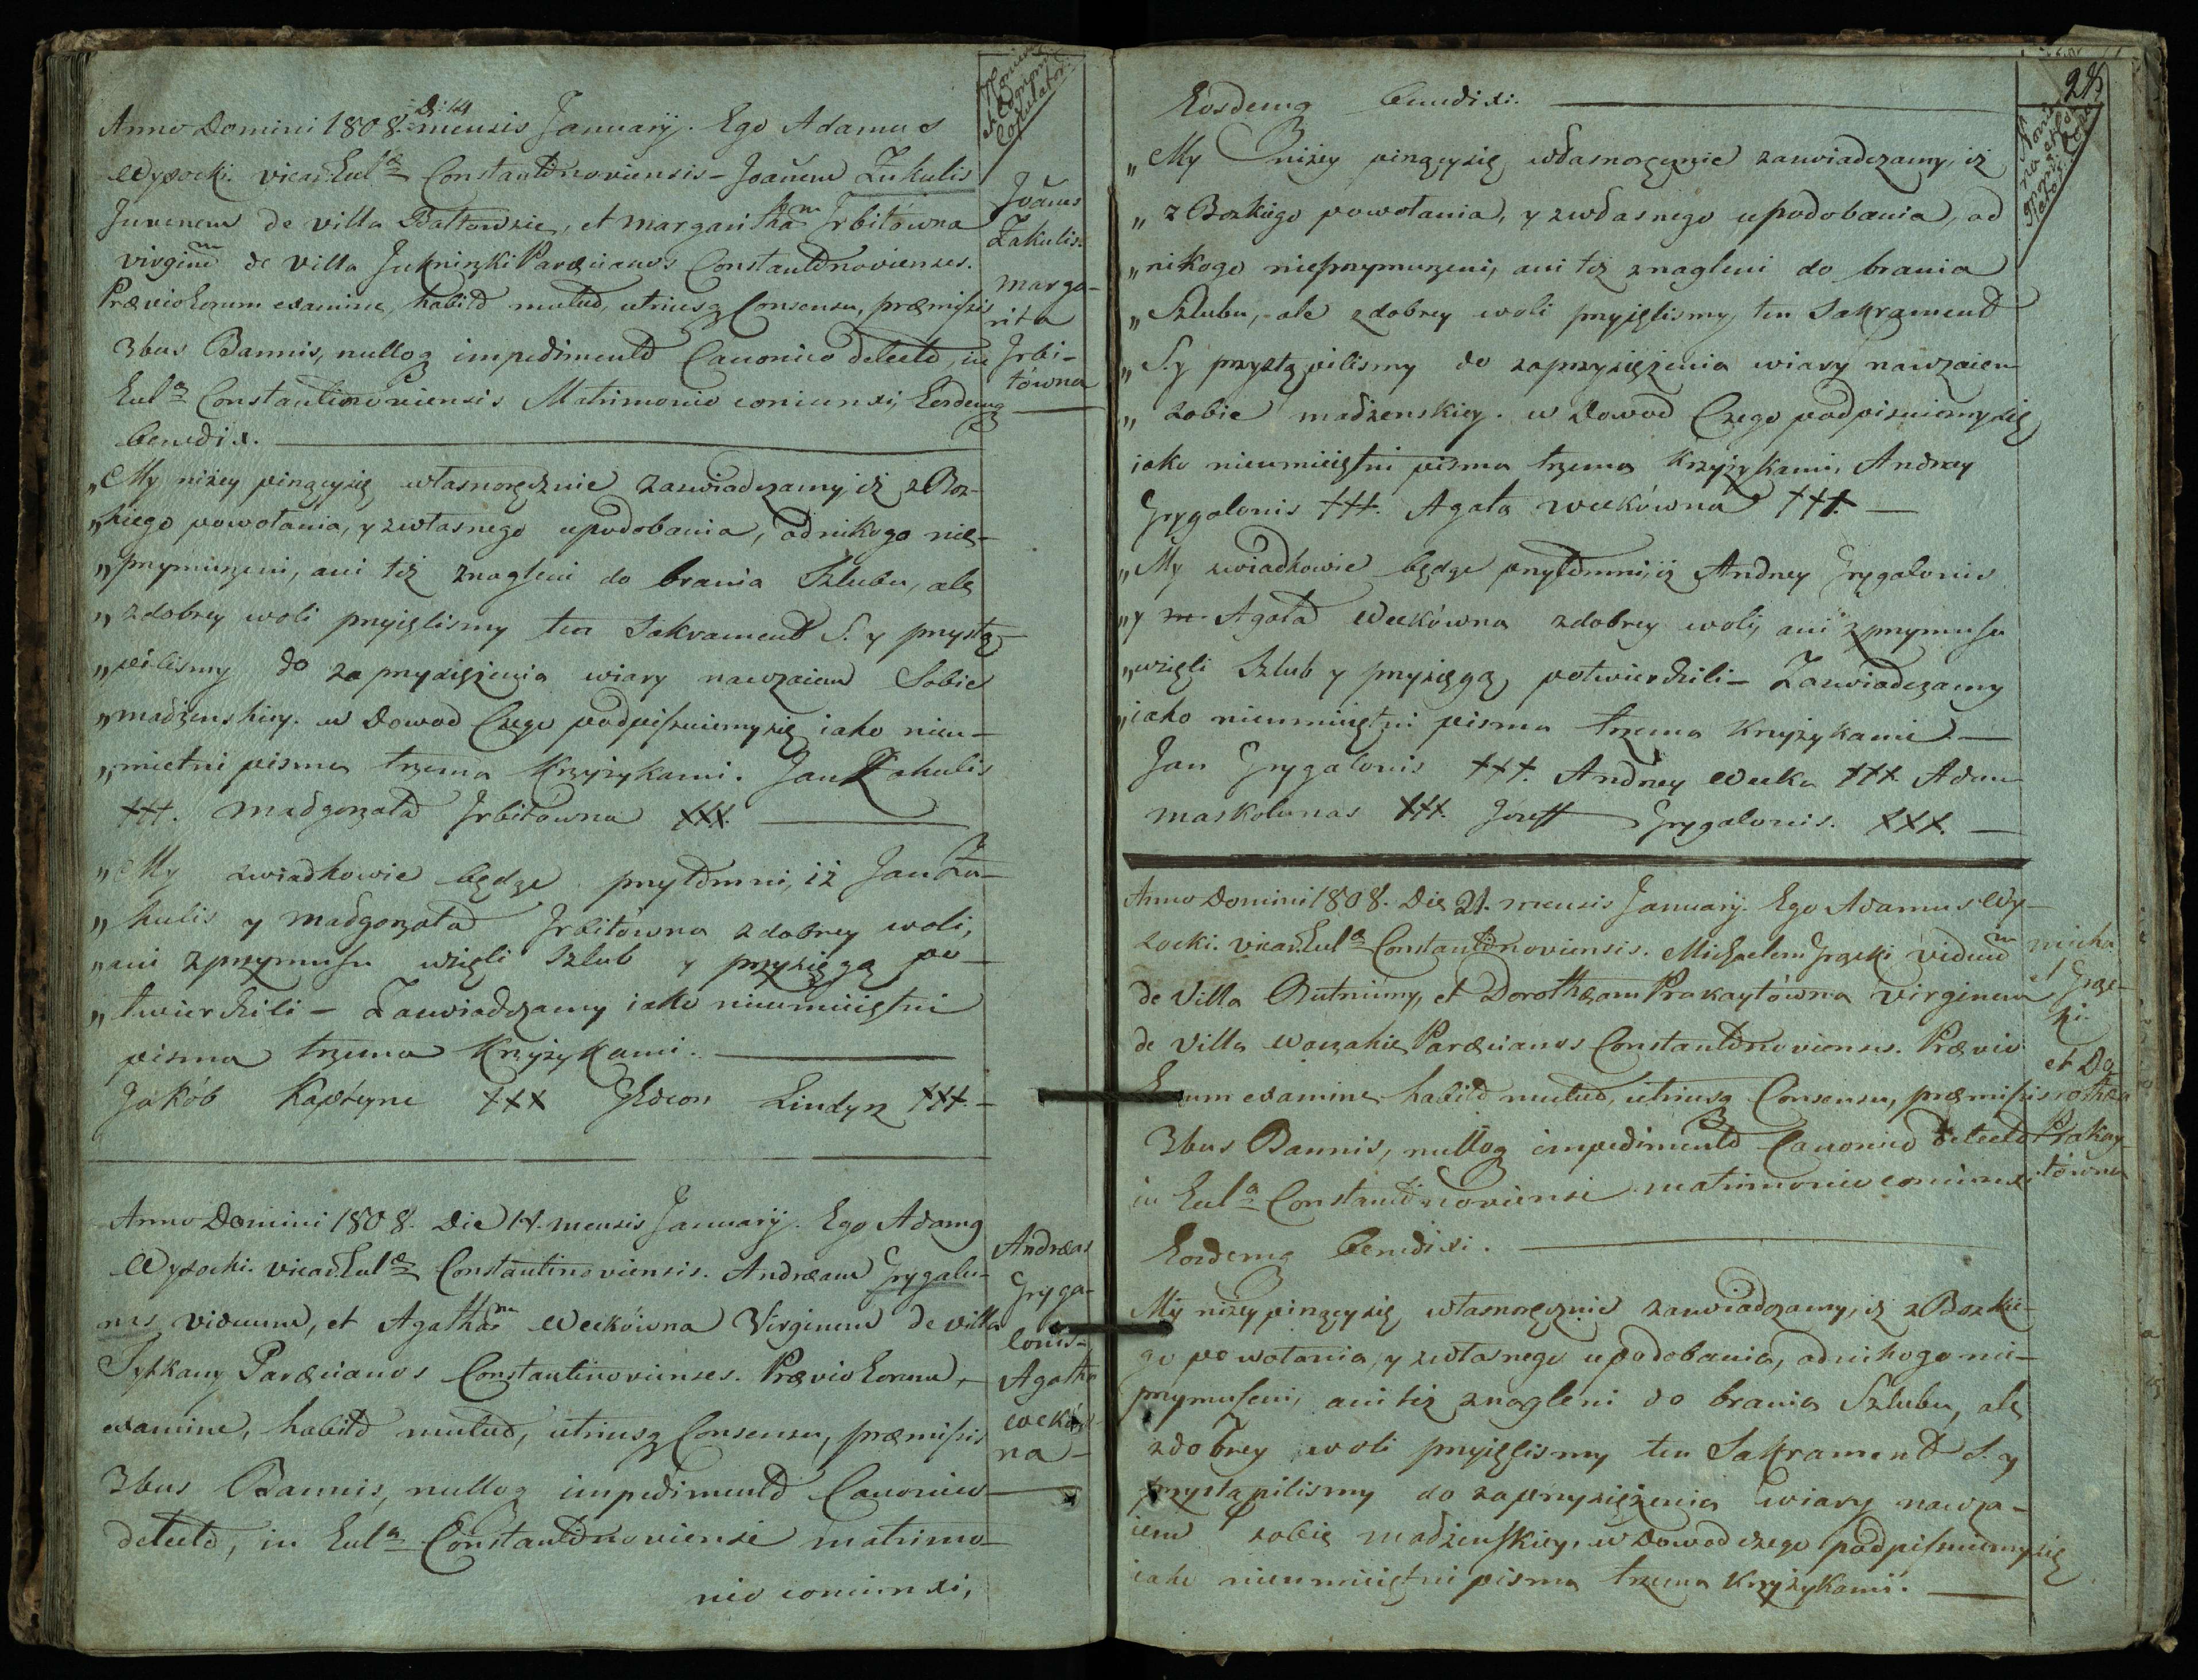 Anno Domini 1808. D: 14 mensis Januarij. Ego Adamus
Wysocki. vicar: Eccl~æ Constantinoviensis - Joanem Zukulis
Juvenem de villa Baltowsie, et margaritham Jrbitówna
virginem de villa Jukniszki Paræcianos Constantinovienses.
Prævio Eorum examine, habito mutuo, utriusq Consensu, præmissis
3bus Bannis, nulloq impedimento Canonico detecto, in
Eccl~a Constantinoviensis Matrimonio coniunxi, Eosdemq
benedixi.
„My niżey piszący się własnoręcznie zaswiadczamy, iż z Boz-
„kiego powołania, y zwłasnego upodobania, od nikogo nie-
„przymuszeni, ani też znagleni do brania Szlubu, ale
„zdobrey woli przyięlismy ten Sakrament S. y przystą-
„pilismy do zaprzysiężenia wiary nawzaiem Sobie
„madżenskiey. w Dowod Czego podpisuiemy się iako nieu-
„mietni pisma trzema Krzyżykami. Jan Zakulis
+++. Madgorzata Jrbitowna +++.
„My swiadkowie będąc przytomni, iż Jan Za-
„kulis y Madgorzata Jrbitówna zdobrey woli,
„ani zprzymusu wzięli Szlub y przysięgą po-
„twierdzili - Zaswiadczamy iako nieumieiętni
pisma trzema Krzyżykami.
Jakób Kapśeyne +++ Gedeon Lindyn +++. -
Anno Domini 1808. Die 14. mensis Januarij. Ego Adam9
Wysocki. vicar: Eccl~æ Constantinoviensis. Andræam Grygalu-
nis viduum, et Agatham Weekówna Virginem de villa
Sylkany Paræcianos Constantinovienses. Prævio Eorum,
examine, habito mutuo, utriusq Consensu, præmissis
3bus Bannis, nulloq impedimento Canonico
detecto, in Eccl~a Constantinoviensi matrimo-
nio coniunxi,
et Cognomi
Copulator:
Joanes
Zakulis.
marga-
rita
Jrbi-
tówna
Andræas
Gryga-
lonis-
Agatha
Weeków-
na -
Eosdemq benedixi.
„My niżey piszący się własnoręcznie zaswiadczamy, iż
„z Bozkiego powołania, y zwłasnego upodobania, od
„nikogo nieprzymuszeni, ani też znagleni do brania
„Szlubu, ale zdobrey woli przyięlismy ten Sakrament
„S. y przystąpilismy do zaprzysiężenia wiary nawzaiem
„sobie madżenskiey. w Dowod Czego podpisuiemy się
iako nieumieiętni pisma trzema Krzyżykami, Andrzey
Grygalonis +++. Agata Weekówna +++. -
„My swiadkowie będąc przytomni, iż Andrzey Grygalonis
„y Agata Weekówna zdobrey woli, ani zprzymusu
„wzięli Szlub y przysięgą potwierdzili - Zaswiadczamy
„iako nieumieiętni pisma trzema Krzyżykami. -
Jan Grygalonis +++. Andrzey Weeka +++. Adam
maskolunas +++. Jozeff Grygalonis. +++. -
Anno Domini 1808. Die 21. mensis Januarij. Ego Adamus Wy-
socki. vicar: Eccl~æ Constantinoviensis. Michaelem Grzeki viduum
de Villa Rutniuny, et Dorothæam Prakaytówna virginem
de Villa Woszakie Paræcianos Constantinovienses. Prævio
Eorum examine habito mutuo, utriusq Consensu, præmissis
3bus Bannis, nulloq impedimento Canonico detecto
in Eccl~a Constantinoviensi matrimonio coniunxi
Eosdemq benedixi.
My niżey piszący się własnoręcznie zaswiadczamy, iż z Bozkie-
go powołania, y zwłasnego upodobania, od nikogo nie-
przymuszeni, ani też znagleni do brania Szlubu, ale
zdobrey woli przyięlismy ten Sakrament S. y
przystąpilismy do zaprzysiężenia wiary nawza-
iem sobie madżenskiey, w Dowod czego podpisuiemy się
iako nieumieiętni pisma trzema Krzyżykami. -
micha
el Grze-
ki.
et Do-
rothæa
Prakay-
tówna